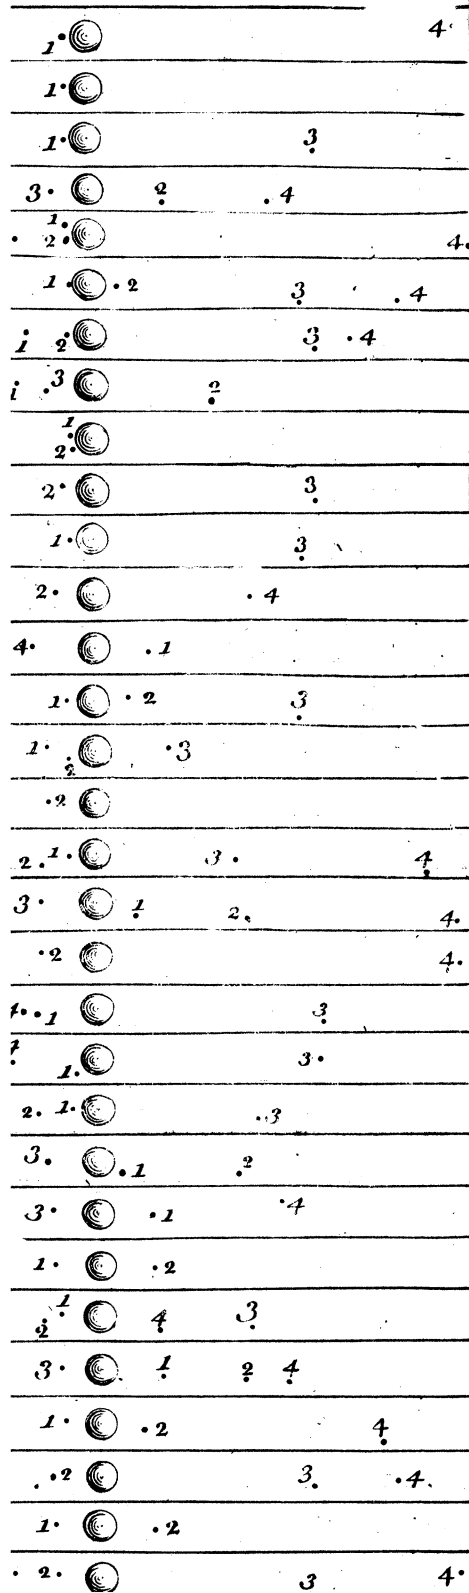 1 4
1
1 3
3 2 4
1
2 4
1 2 3 4
1 2 3 4
i 3 2
1
2
2 3
1 3
2 4
4 1
1 2 3
1 2 3
2
2 1 3 4
3 1 2 4
2 4
1 3
1 3
2 1 3
3 1 2
3 1 4
1 2
1 2 4 3
3 1 2 4
1 2 4
2 3 4
1 2
2 3 4